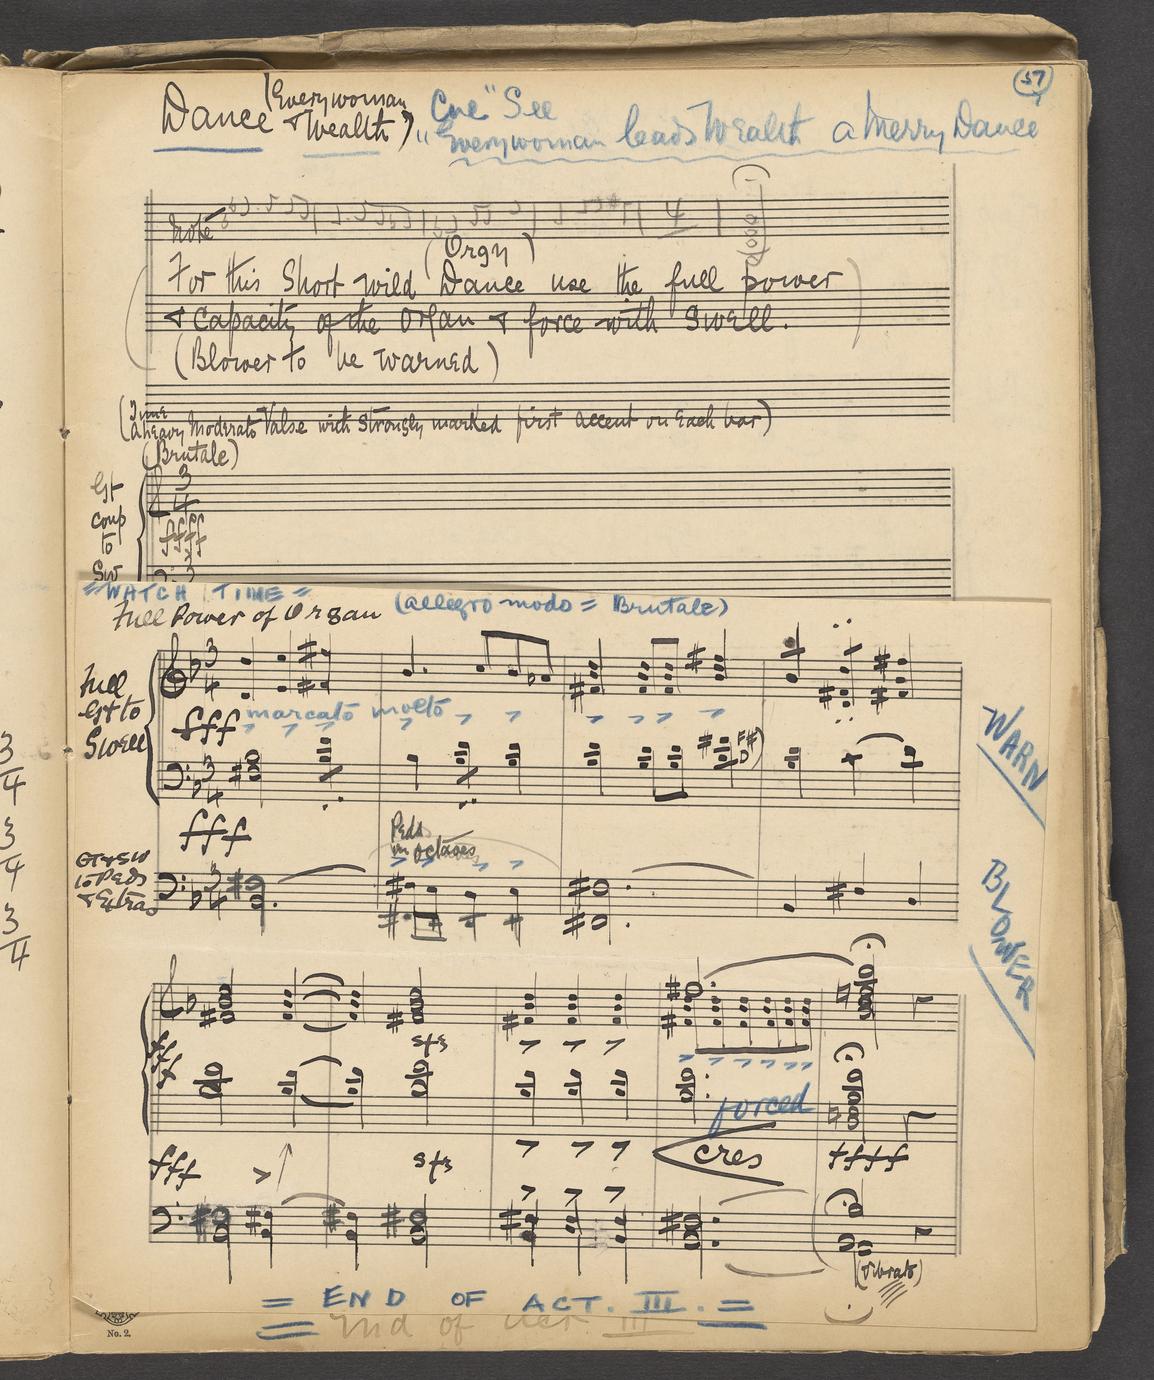 57
Dance (Everywoman & Wealth)
Cue" See
"Everywoman leads Wealth a Merry Dance
Note
(Orgn)
For this Short wild Dance use the full power
& Capacity of the Organ & force with Swell.
(Blower to be warned)
(Time
a heavy Moderato Valse with strongly marked first accent on Each bar)
(Brutale)
Gt
coup
to
Sw
3
4
ffff
3
"WATCH TIME"
Full Power of Organ (allegro modo = Brutale)
Full
Gt to
Swell
3
4
fff marcato molto
3
4
F#
D
fff
Peds
in octaves
GT & SW
to Peds
& Extras
3
4
WARN
BLOWER
3
4
3
4
3
4
fff
sfz
forced
fff
sfz
cres
ffff
(vibrato)
= END OF ACT. III. =
End of Act. III
No. 2.